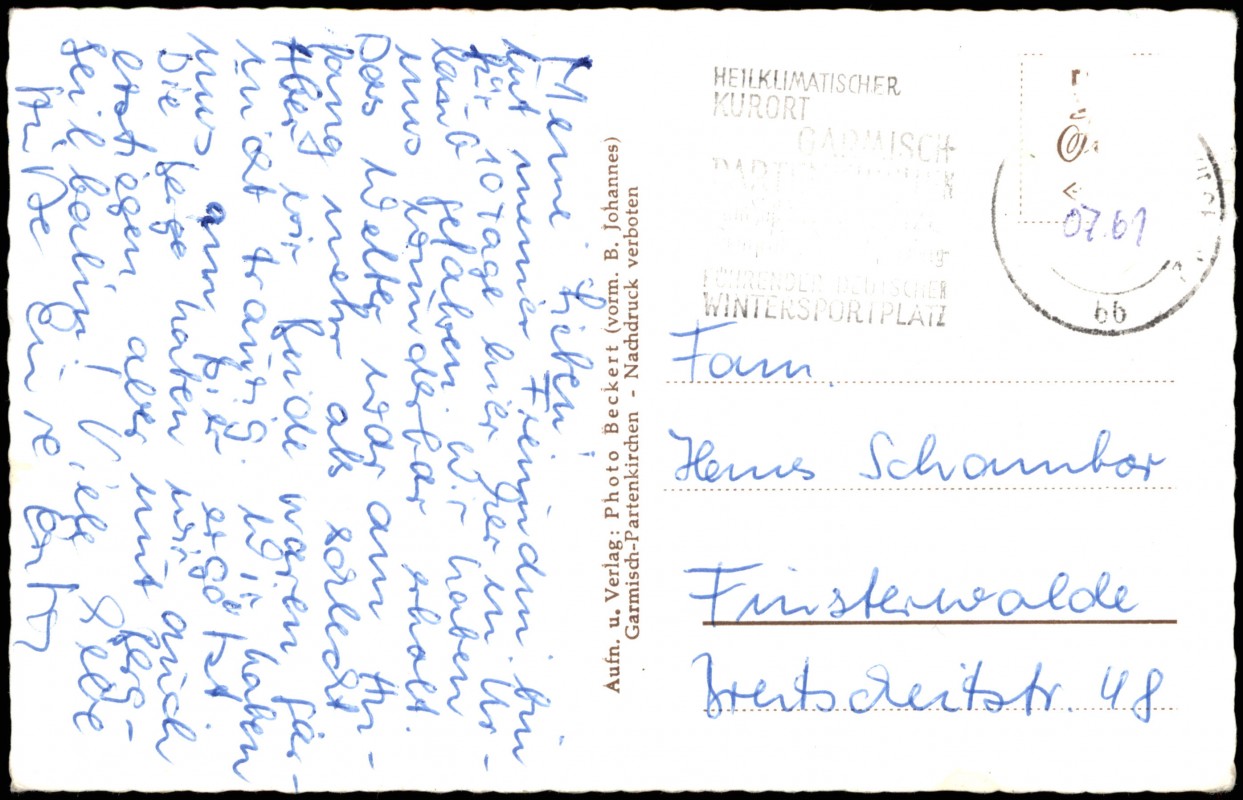 Meine Lieben!
mit meiner Freundin bin
für 10 Tage hier in Ur-
laub gefahren. Wir haben
uns wunderbar erholt.
Das Wetter war am An-
fang mehr als schlecht
Aber wir beide waren gar
nicht traurig. Wir haben
uns ergötzt
Die Berge haben wir auch
erstiegen aber mit Berg-
seilbahn! Viele liebe
Grüße Eure
Aufn. u. Verlag: Photo Beckert (vorm. B. Johannes)
Garmisch-Partenkirchen - Nachdruck verboten
HEILKLIMATISCHER
KURORT
GARMISCH-
PARTENKIRCHEN
FÜHRENDER DEUTSCHER
WINTERSPORTPLATZ
07.61
bb
Fam.
Hans Schombor
Finsterwalde
Breitscheidstr. 48